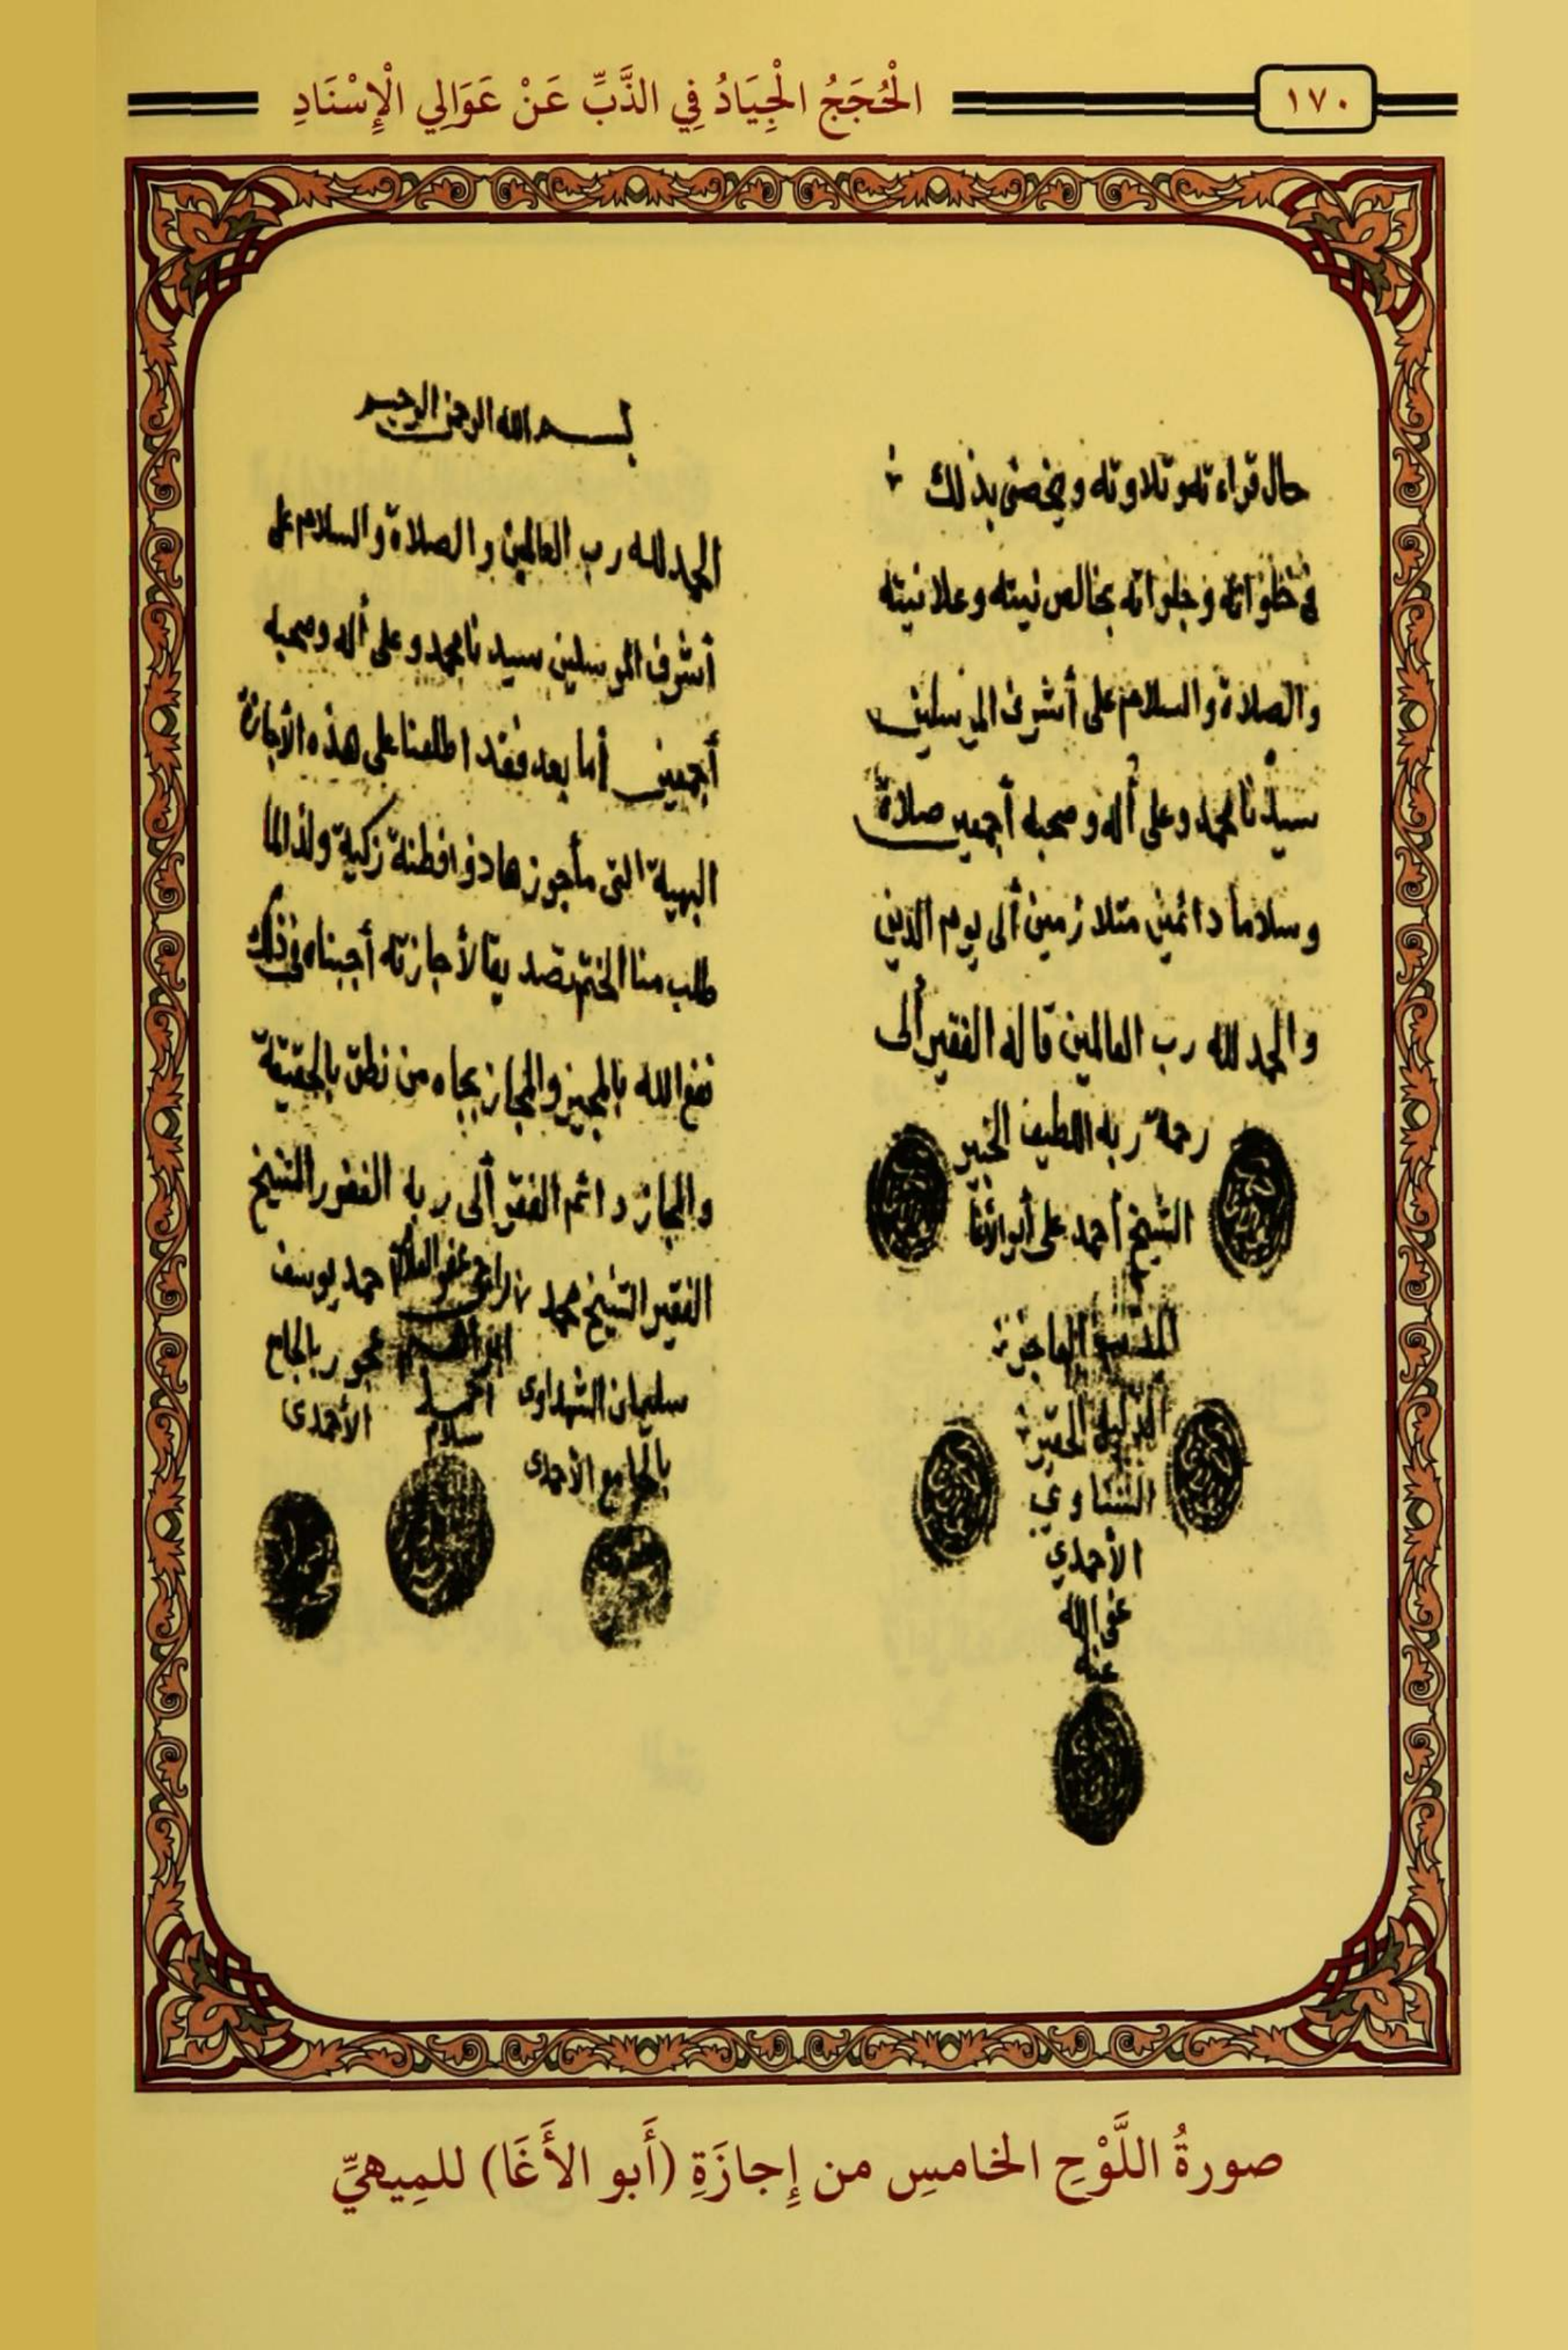 ١٧٠
الْحُجَجُ الْجِيَادُ فِي الذَّبِّ عَنْ عَوَالِي الْإِسْنَادِ
حال قراءته وتلاوته ويخصنى بذلك
فى خلواته وجلواته بخالص نيته وعلانيته
والصلاة والسلام على أشرف المرسلين
سيدنا محمد وعلى أله وصحبه أجمعين صلاة
وسلاما دائمين متلازمين ألى يوم الدين
والحمد لله رب العالمين قاله الفقير ألى
رحمة ربه اللطيف الخبير
الشيخ أحمد على أبو الأغا
العاجز
الذليل الحقير
الشناوي
الأحمدي
عفى الله
عنه
بسم الله الرحمن الرحيم
الحمد لله رب العالمين والصلاة والسلام على
أشرف المرسلين سيدنا محمد وعلى أله وصحبه
أجمعين أما بعد فقد اطلعنا على هذه الأجازة
البهية التى مأجوزها ذو افطنة زكية ولذا لما
طلب منا الختم تصديقا لأجازته أجبناه فى ذلك
نفع الله بالمجيز والمجاز بجاه من نطق بالحقيقة
والمجاز دائم الفقر ألى ربه الغفور الشيخ
الفقير الشيخ محمد راجى عفو أحمد يوسف
سليمان الشهداوى ابراهيم عجور بالجامع
أحمد سلام الأحمدى
بالجامع الأحمدى
صورةُ اللَّوْحِ الخامسِ من إِجازَةِ (أَبو الأَغَا) للمِيهيِّ